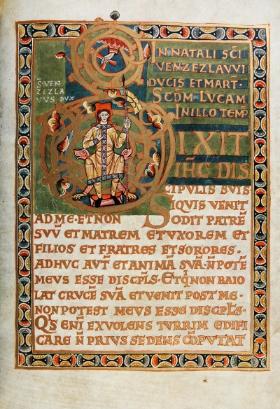 IN NATALI SCI
VENZEZLAVVI
DVCIS ET MART.
SCDM LVCAM
IN ILLO TEMP
S VEN
ZEZLA
VVS DVX
DIXIT
IHC DIS
CIPVLIS SVIS
SIQVIS VENIT
AD ME ET NON ODIT PATRE
SVV ET MATREM ET VXOREM ET
FILIOS ET FRATRES ET SORORES
ADHVC AVT ET ANIMA SVA N POTE
MEVS ESSE DISCPLS ET Q N BAIO
LAT CRVCE SVA ET VENIT POST ME
NON POTEST MEVS ESSE DISCPLS
QS ENI EX VOLENS TVRRIM EDIFI
CARE N PRIVS SEDENS COPVTAT